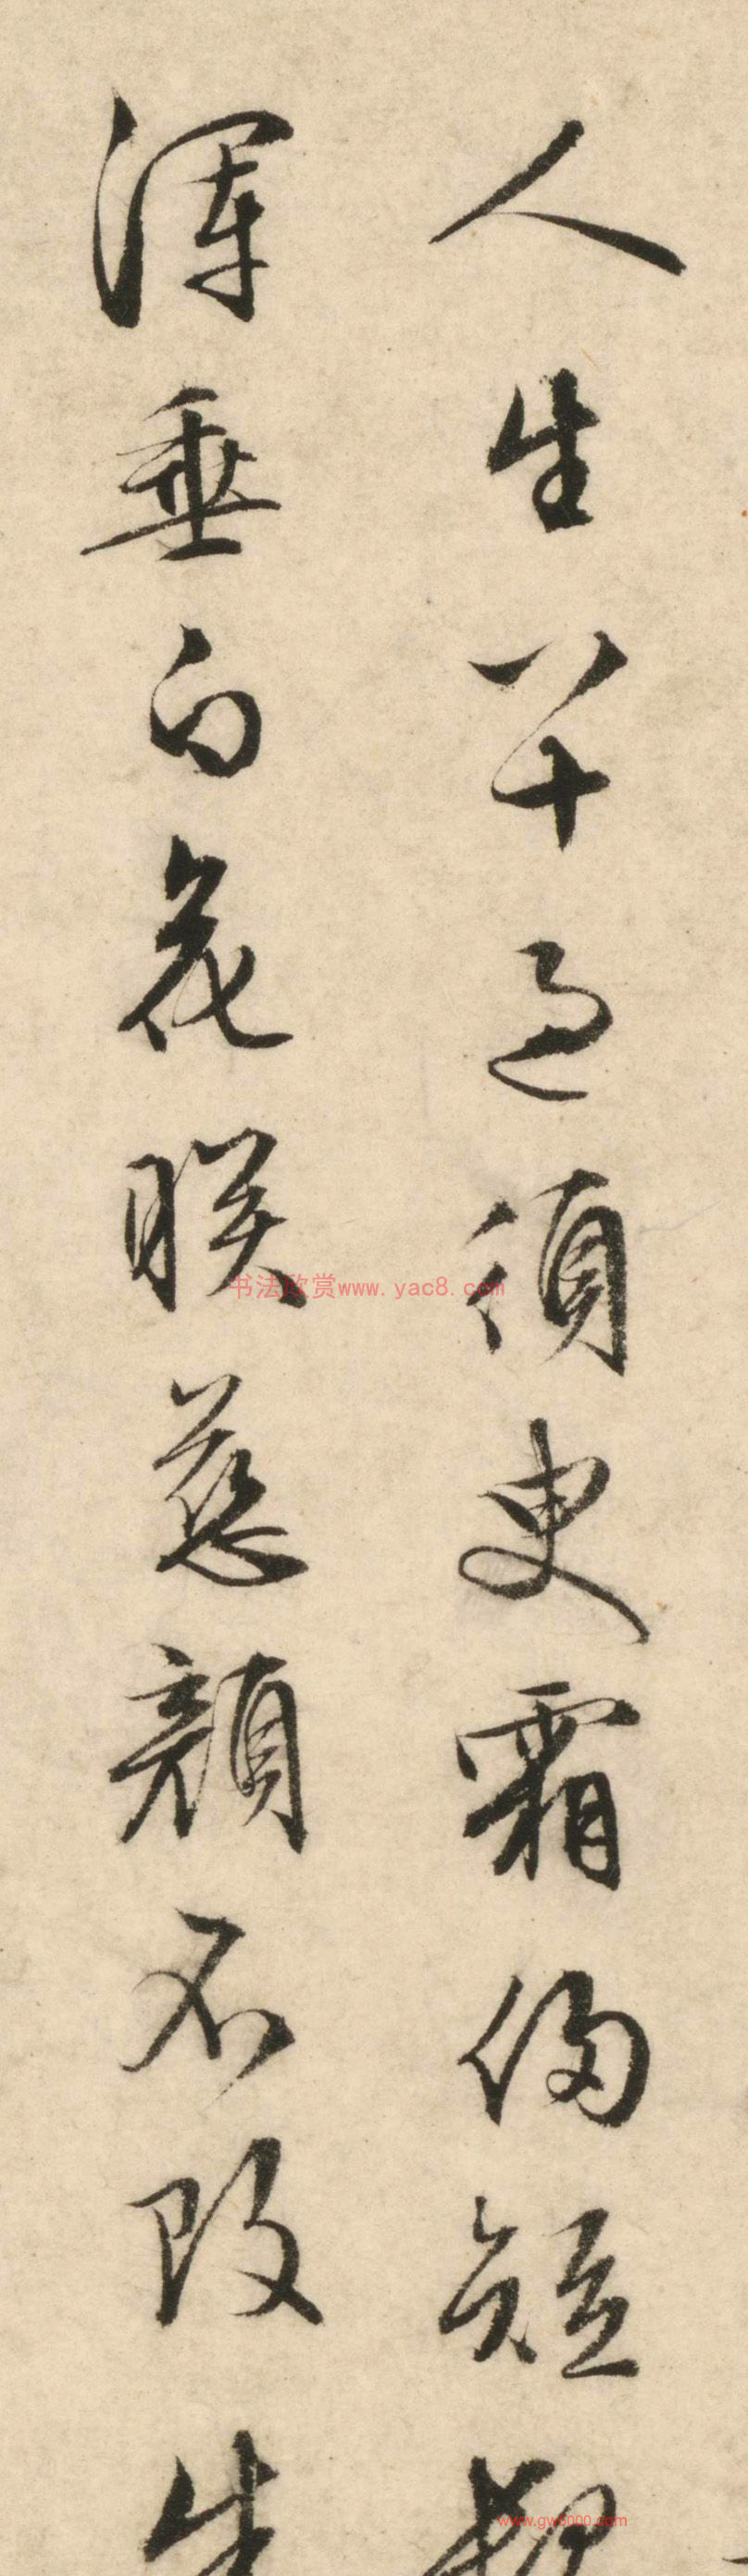 人生八十過須臾霜侵短
渾垂白花映慈顔不改
书法欣赏www.yac8.com
www.gw8000.com